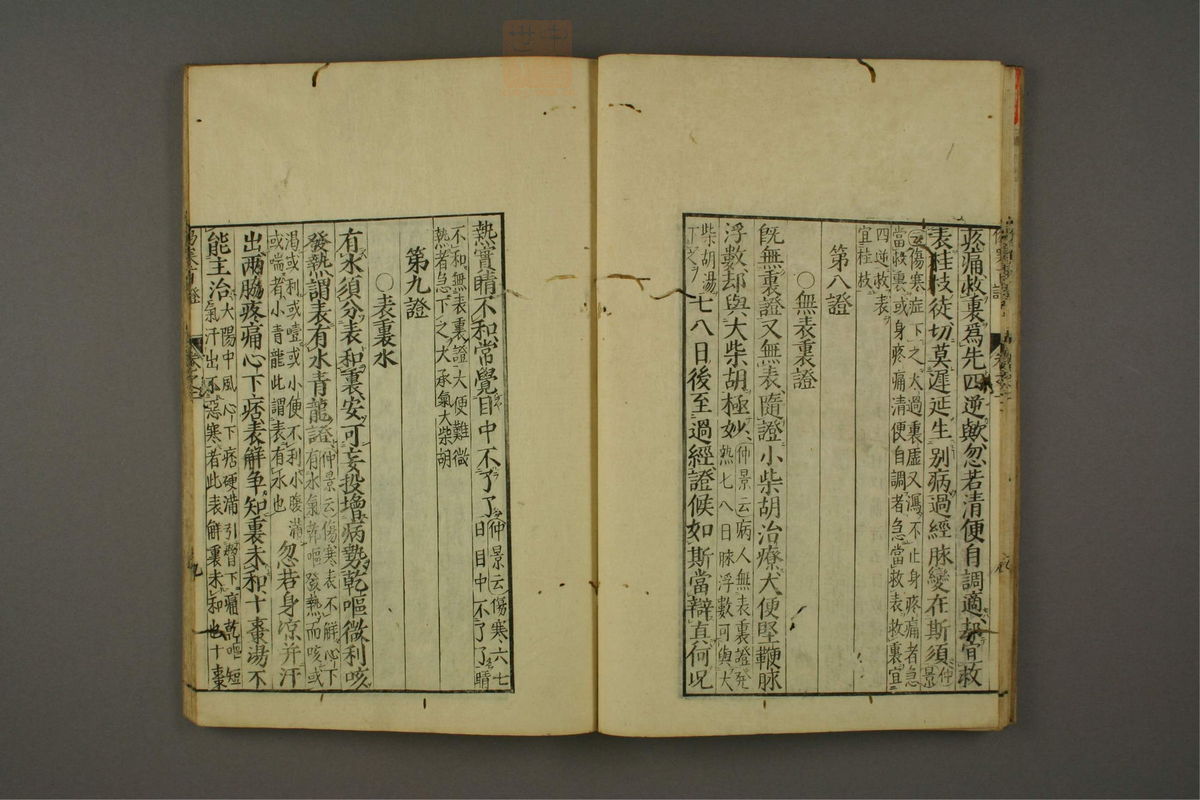 疼痛救裏爲先四逆歟忽若清便自調適却宜救
表桂枝徒切莫遲延生別病過經脉變在斯須仲景
云傷寒症下之大過裏虛又瀉不止身疼痛者急
當救裏或身疼痛清便自調者急當救表救裏宜
四逆救表
宜桂枝
第八證
○無表裏證
旣無裏證又無表隨證小柴胡治療大便堅鞭脉
浮數却與大柴胡極妙仲景云病人無表裏證發
熱七八日脉浮數可與大
柴胡湯
下之
七八日後至過經證候如斯當辯眞何況
熱實睛不和常覺目中不了了仲景云傷寒六七
日目中不了了睛
不和無表裏證大便難微
熱者急下之大承氣大柴胡
第九證
○表裏水
有水須分表和裏安可妄投增病勢乾嘔微利咳
發熱謂表有水青龍證仲景云傷寒表不解心下
有水氣乾嘔發熱而咳或
渴或利或噎或小便不利小腹滿
或喘者小青龍此謂表有水也
忽若身凉并汗
出兩脇疼痛心下痞表解爭知裏未和十棗湯不
能主治太陽中風心下痞硬滿引脇下痛乾嘔短
氣汗出不惡寒者此表解裏未和也十棗